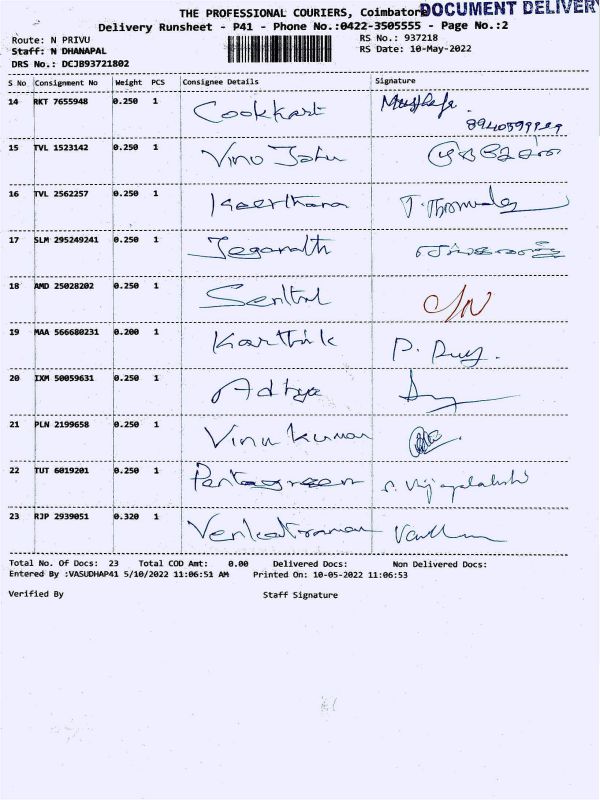 THE PROFESSIONAL COURIERS, Coimbator DOCUMENT DELIVERY
Delivery Runsheet - P41 - Phone No.:0422-3505555 - Page No.:2
Route: N PRIVU RS No.: 937218
Staff: N DHANAPAL RS Date: 10-May-2022
DRS No.: DCJB93721802
S No Consignment No Weight PCS Consignee Details Signature
14 RKT 7655948 0.250 1 Cookkart
15 TVL 1523142 0.250 1 Vino John
16 TVL 2562257 0.250 1 Keerthana
17 SLM 295249241 0.250 1 Jeganath
18 AMD 25028202 0.250 1 Senthil
19 MAA 566680231 0.200 1 Karthik
20 IXM 50059631 0.250 1 Adhya
21 PLN 2199658 0.250 1 Vinu kumar
22 TUT 6019201 0.250 1 Pentagreen
23 RJP 2939051 0.320 1 Venkatraman
Total No. Of Docs: 23 Total COD Amt: 0.00 Delivered Docs: Non Delivered Docs:
Entered By :VASUDHAP41 5/10/2022 11:06:51 AM Printed On: 10-05-2022 11:06:53
Verified By Staff Signature